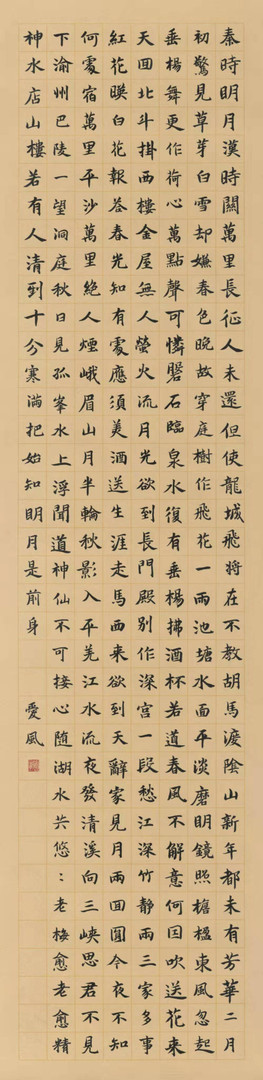 秦時明月漢時關萬里長征人未還但使龍城飛將在不教胡馬渡陰山新年都未有芳華二月
初驚見草芽白雪却嫌春色晚故穿庭樹作飛花一雨池塘水面平淡磨明鏡照檐楹東風忽起
垂楊舞更作荷心萬點聲可憐磐石臨泉水復有垂楊拂酒杯若道春風不解意何因吹送花來
天回北斗掛西樓金屋無人螢火流月光欲到長門殿別作深宮一段愁江深竹靜兩三家多事
紅花暎白花報答春光知有處應須美酒送生涯走馬西來欲到天辭家見月兩回圓今夜不知
何處宿萬里平沙萬里絕人煙峨眉山月半輪秋影入平羌江水流夜發清溪向三峽思君不見
下渝州巴陵一望洞庭秋日見孤峯水上浮聞道神仙不可接心隨湖水共悠：老梅愈老愈精
神水店山樓若有人清到十分寒滿把始知明月是前身 愛風